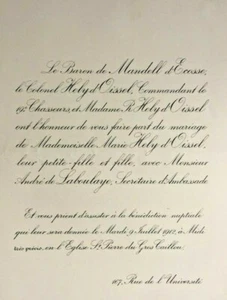 Le Baron de Mandell d'Ecosse,
le Colonel Hely d'Oissel, Commandant le
19e Chasseurs, et Madame R. Hely d'Oissel
ont l'honneur de vous faire part du mariage
de Mademoiselle Marie Hely d'Oissel,
leur petite-fille et fille, avec Monsieur
André de Laboulaye, Secrétaire d'Ambassade
Et vous prient d'assister à la bénédiction nuptiale
qui leur sera donnée le Mardi 9 Juillet 1912, à Midi
très précis, en l'Eglise St Pierre du Gros Caillou.
117, Rue de l'Université